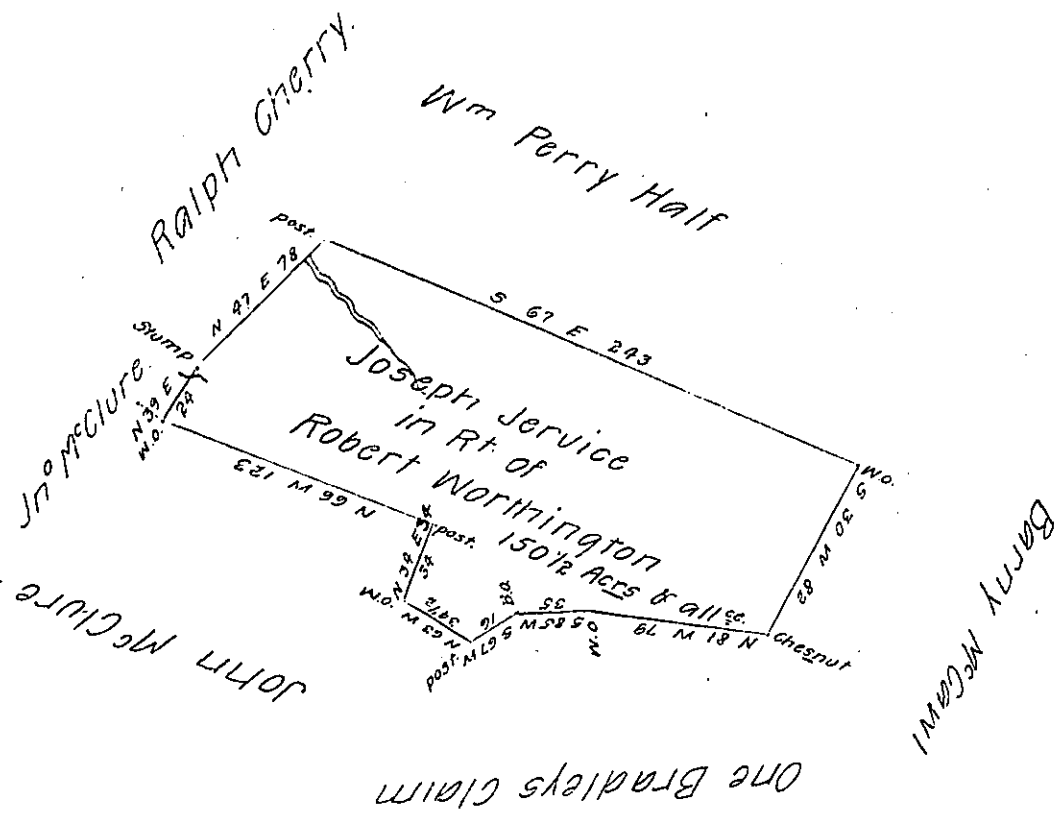 Ralph Cherry.
Wm Perry Half
post.
N 47 E 78
S 67 E 243
Stump
Jno McClure.
N 39 E
24
W.O.
Joseph Jervice
in Rt. of
Robert Worthington
150 1/2 Acrs & allce.
W.O.
S 30 W 82
Barny McCawl
N 66 W 123
post.
N 34 E 34
54
W.O.M
N 63 W
34 1/2
post.
S 67 W
16
B.O.
S 85 W
55
W.O
N 81 W 79
Chesnut
John McClure
One Bradleys Claim